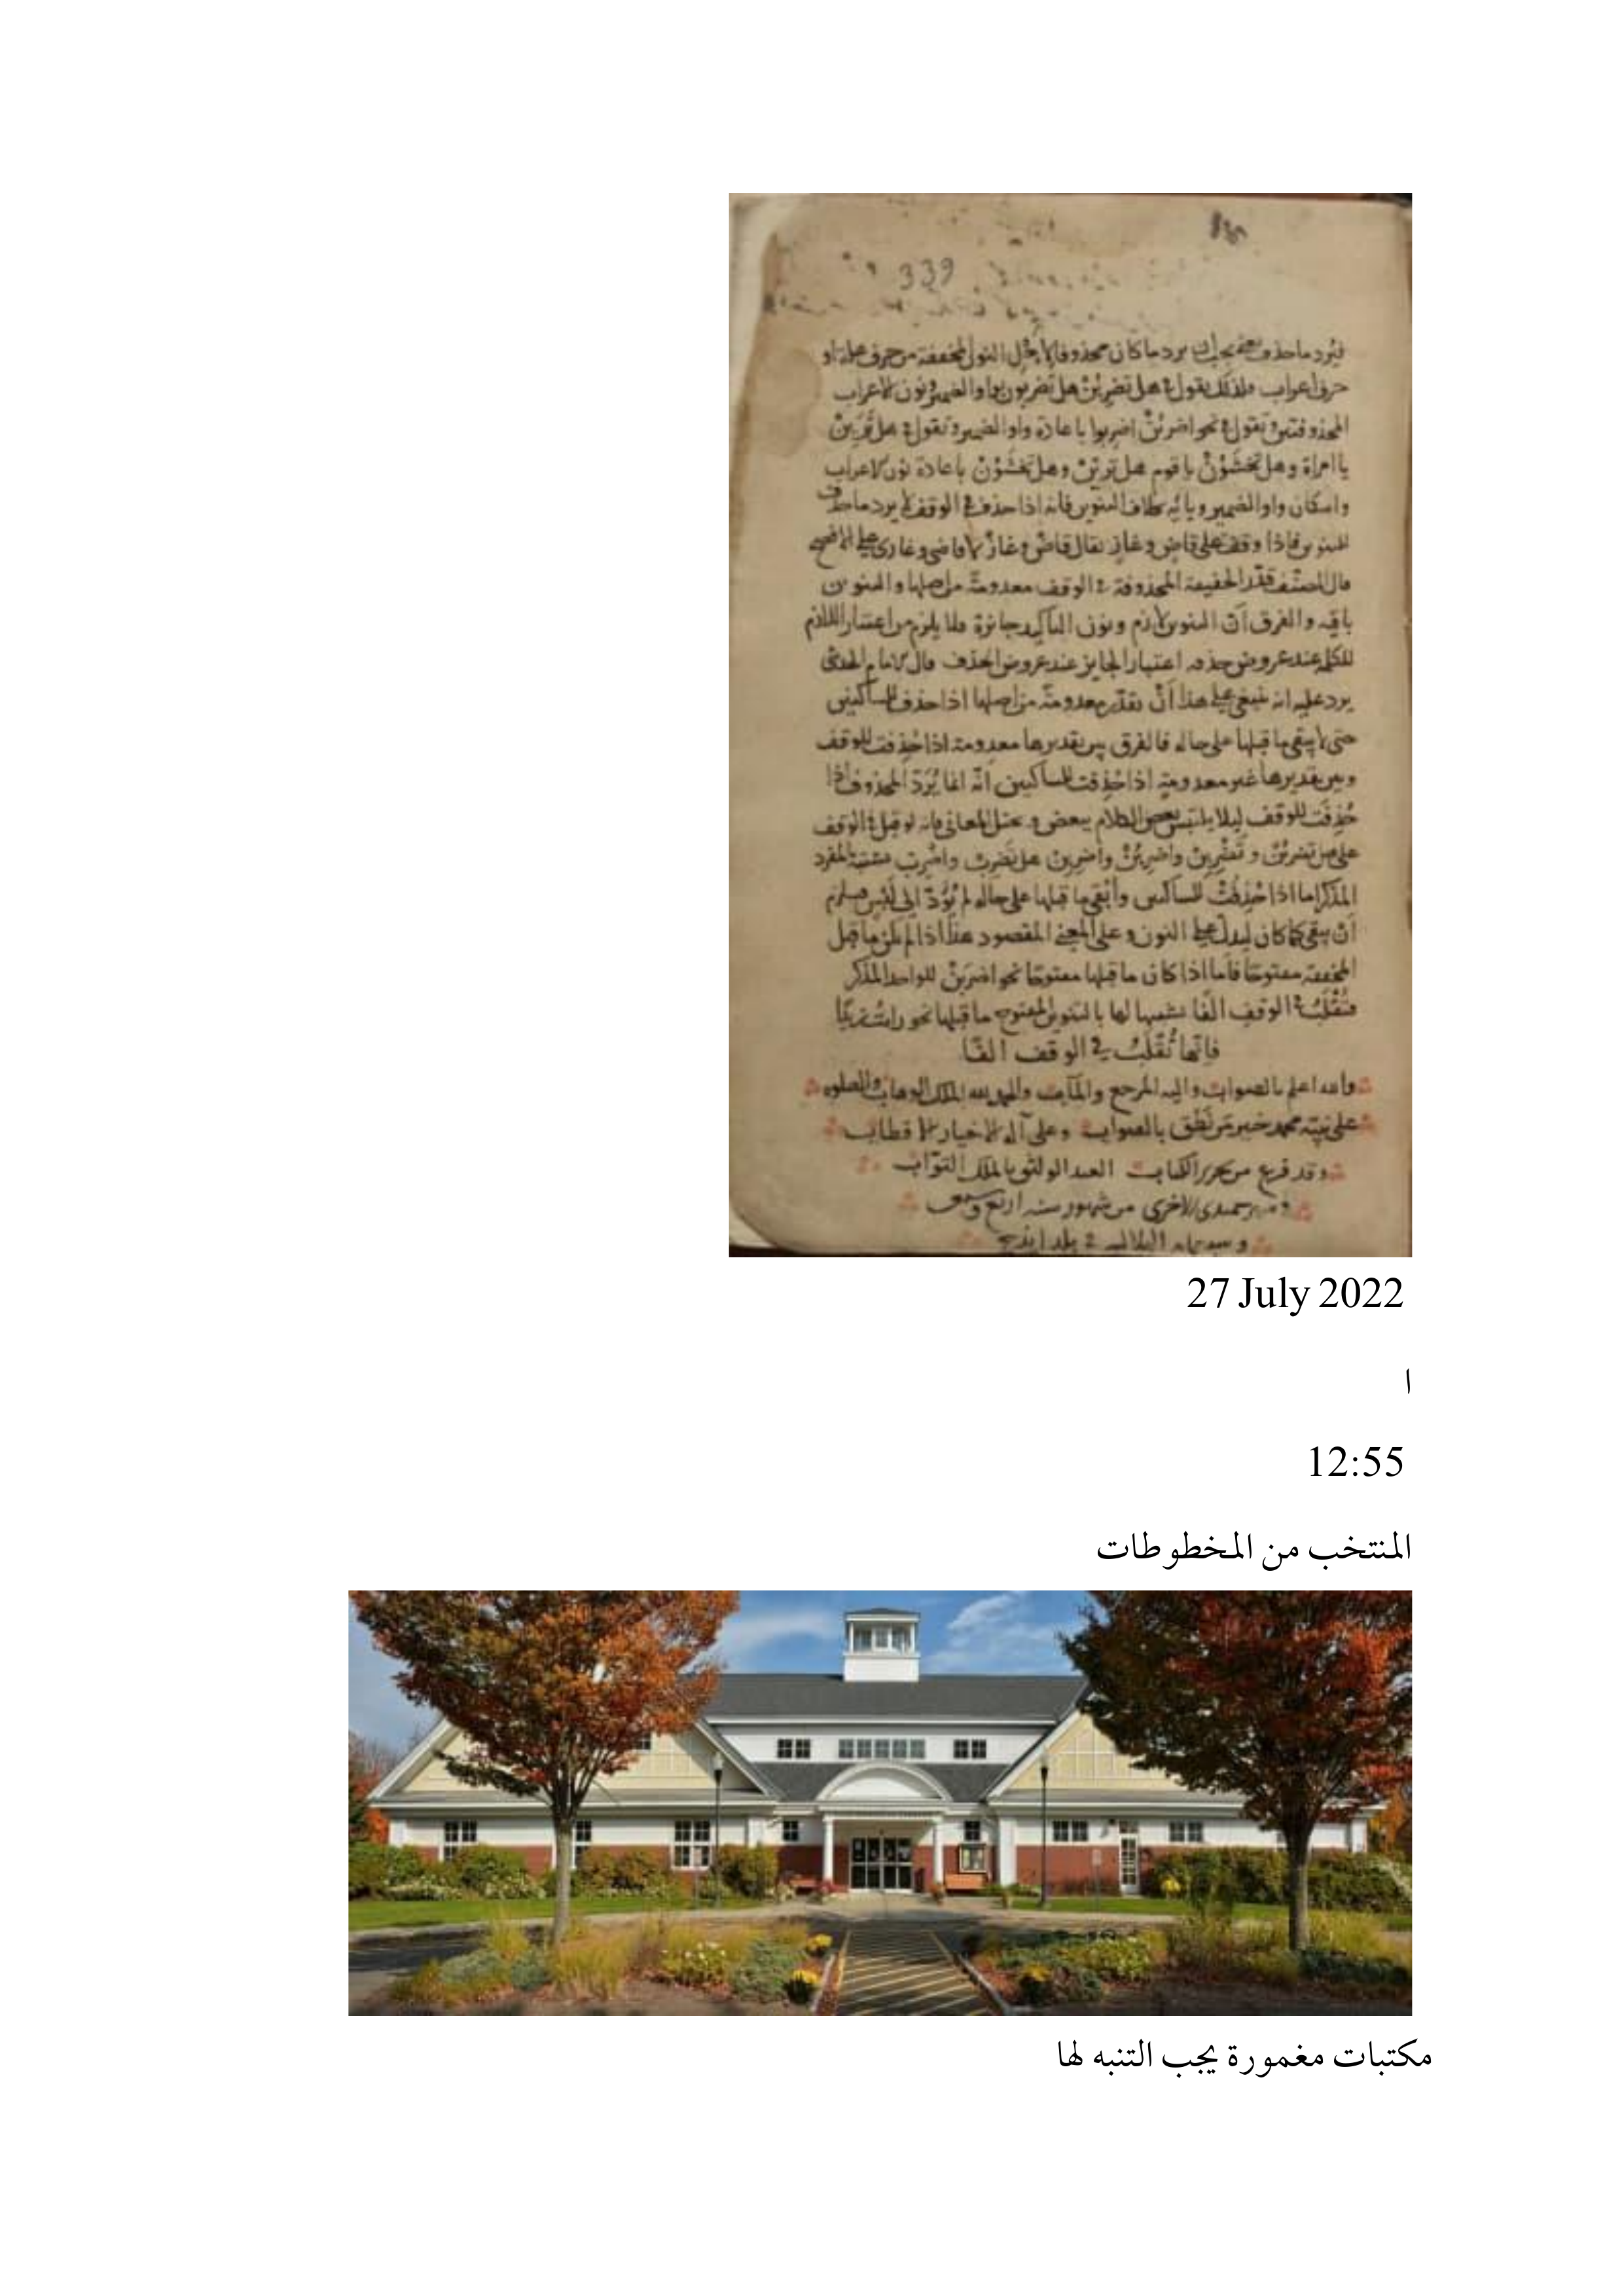 339
فيرد ما حذف يعنى يجب ان يرد ما كان محذوفا لاجل النون المخففة من حرف علة او
حرف اعراب فلذلك يقول فى هل تضربن هل تضربون بواو الضمير ونون الاعراب
المحذوفتين وتقول فى نحو اضربن اضربوا باعادة واو الضمير وتقول فى هل ترين
يا امراة وهل تخشون يا قوم هل ترين وهل تخشون باعادة نون الاعراب
واسكان واو الضمير ويائه بخلاف التنوين فانه اذا حذف فى الوقف لا يرد ما حذف
للتنوين فاذا وقف على قاض وغاز يقال قاض وغاز لا قاضى وغازى على الافصح
قال المصنف قدر الخفيفة المحذوفة فى الوقف معدومة من اصلها والتنوين
باقيه والفرق ان التنوين لازم ونون التاكيد جائزة فلا يلزم من اعتبار اللازم
للكلمة عند عروض حذفه اعتبار الجايز عند عروض الحذف قال الامام
يرد عليه انه ينبغى على هذا ان تقدر معدومة من اصلها اذا حذف للساكنين
حتى لا يبقى ما قبلها على حاله فالفرق بين تقديرها معدومة اذا حذفت للوقف
وبين تقديرها غير معدومة اذا حذفت للساكنين انه انما يرد المحذوف اذا
حذفت للوقف ليلا يلتبس بعض الكلام ببعض و المعانى فانه لو قيل فى الوقف
على هل تضربن و تضربن واضربن واضربن هل تضرب واضرب المفرد
المذكر اما اذا حذفت للساكنين وأبقى ما قبلها على حاله لم يؤد الى لبس
أن يبقى كما كان ليدل على النون وعلى المعنى المقصود هذا اذا لم يكن ما قبل
المخففة مفتوحا فأما اذا كان ما قبلها مفتوحا نحو اضربن للواحد المذكر
فتقلب فى الوقف الفا تشبيها لها بالتنوين المفتوح ما قبلها نحو رايت زيدا
فانها تقلب فى الوقف الفا
والله اعلم بالصواب واليه المرجع والمآب والحمد لله الملك الوهاب والصلوة
على نبيه محمد خير من نطق بالصواب وعلى آله الاخيار الاقطاب
وقد فرغ من تحرير الكتاب العبد الواثق بالملك التواب
الاخرى من شهور سنه اربع
فى بلد
27 July 2022
ا
12:55
المنتخب من المخطوطات
مكتبات مغمورة يجب التنبه لها